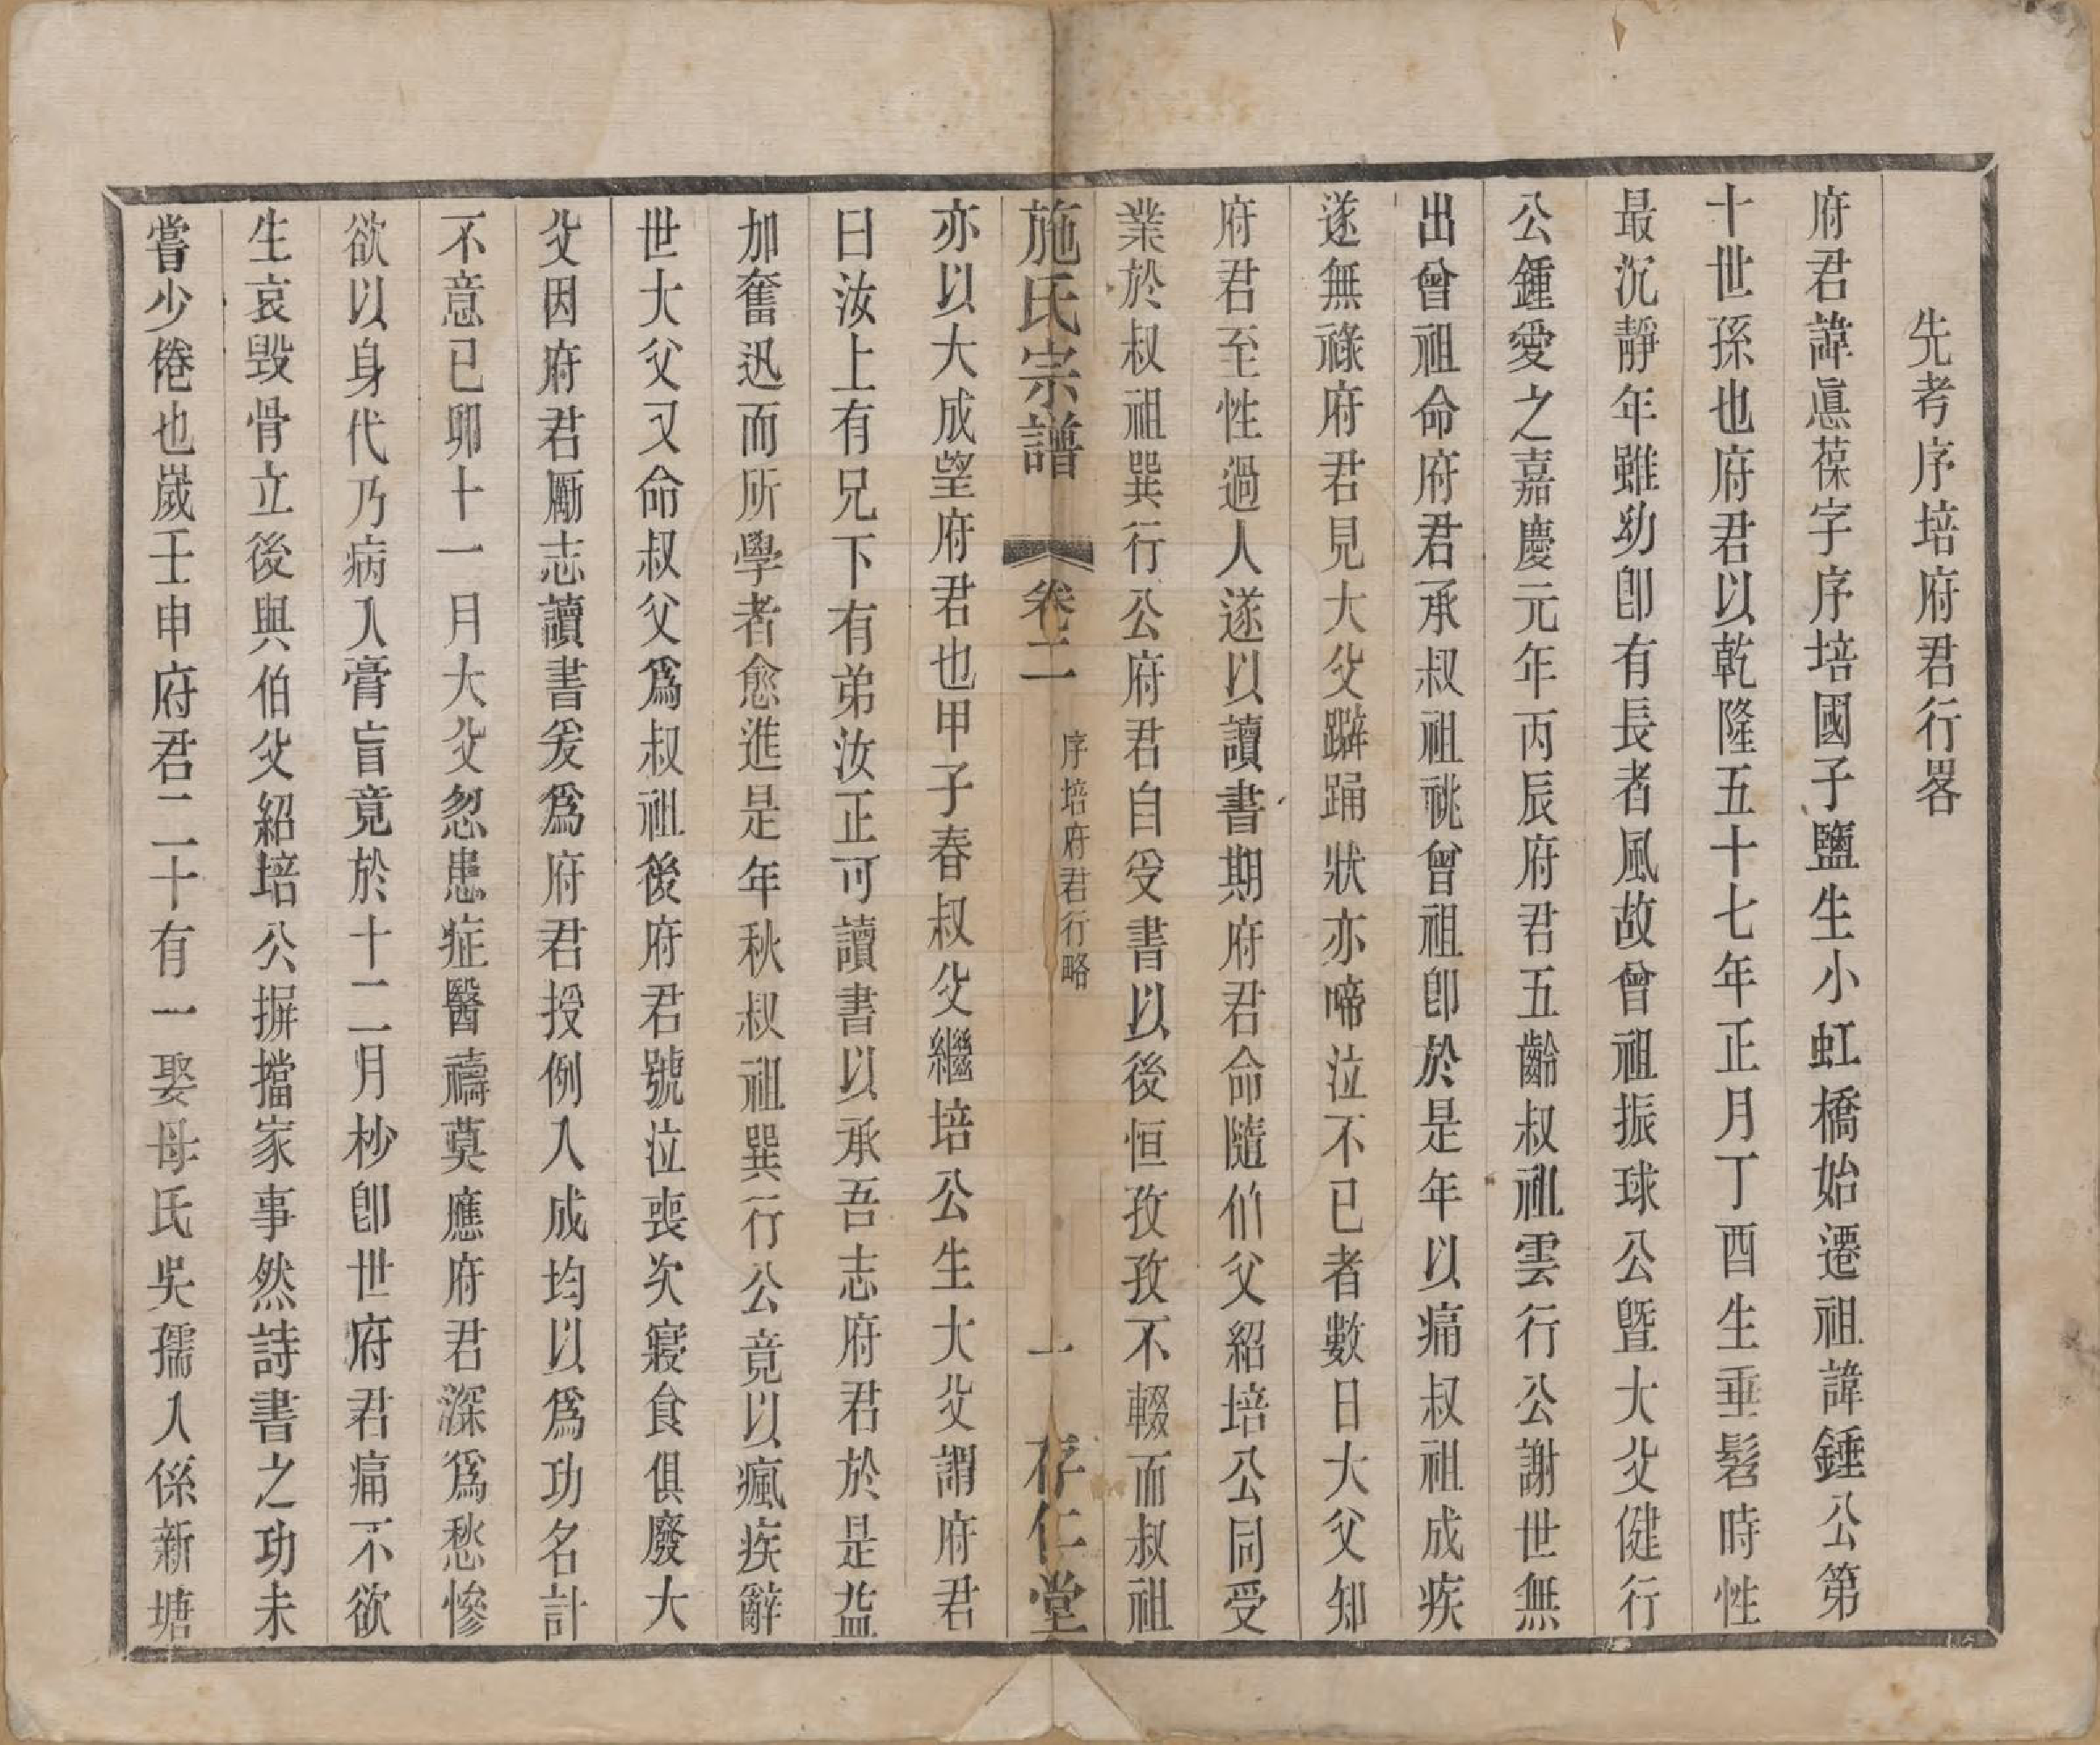 先考序培府君行畧
府君諱愼葆字序培國子鹽生小虹橋始遷祖諱錘公第
十世孫也府君以乾隆五十七年正月丁酉生垂髫時性
最沉靜年雖幼卽有長者風故曾祖振球公曁大父健行
公鍾愛之嘉慶元年丙辰府君五齡叔祖雲行公謝世無
出曾祖命府君承叔祖祧曾祖卽於是年以痛叔祖成疾
遂無祿府君見大父躃踊狀亦啼泣不已者數日大父知
府君至性過人遂以讀書期府君命隨伯父紹培公同受
業於叔祖巽行公府君自受書以後恒孜孜不輟而叔祖
施氏宗譜 卷二 序培府君行略 一 存仁堂
亦以大成望府君也甲子春叔父繼培公生大父謂府君
曰汝上有兄下有弟汝正可讀書以承吾志府君於是益
加奮迅而所學者愈進是年秋叔祖巽行公竟以瘋疾辭
世大父又命叔父爲叔祖後府君號泣喪次寢食俱廢大
父因府君勵志讀書爰爲府君授例入成均以爲功名計
不意已卯十一月大父忽患症醫禱莫應府君深爲愁慘
欲以身代乃病入膏盲竟於十二月杪卽世府君痛不欲
生哀毀骨立後與伯父紹培公摒擋家事然詩書之功未
嘗少倦也嵗壬申府君二十有一娶母氏吳孺人係新塘